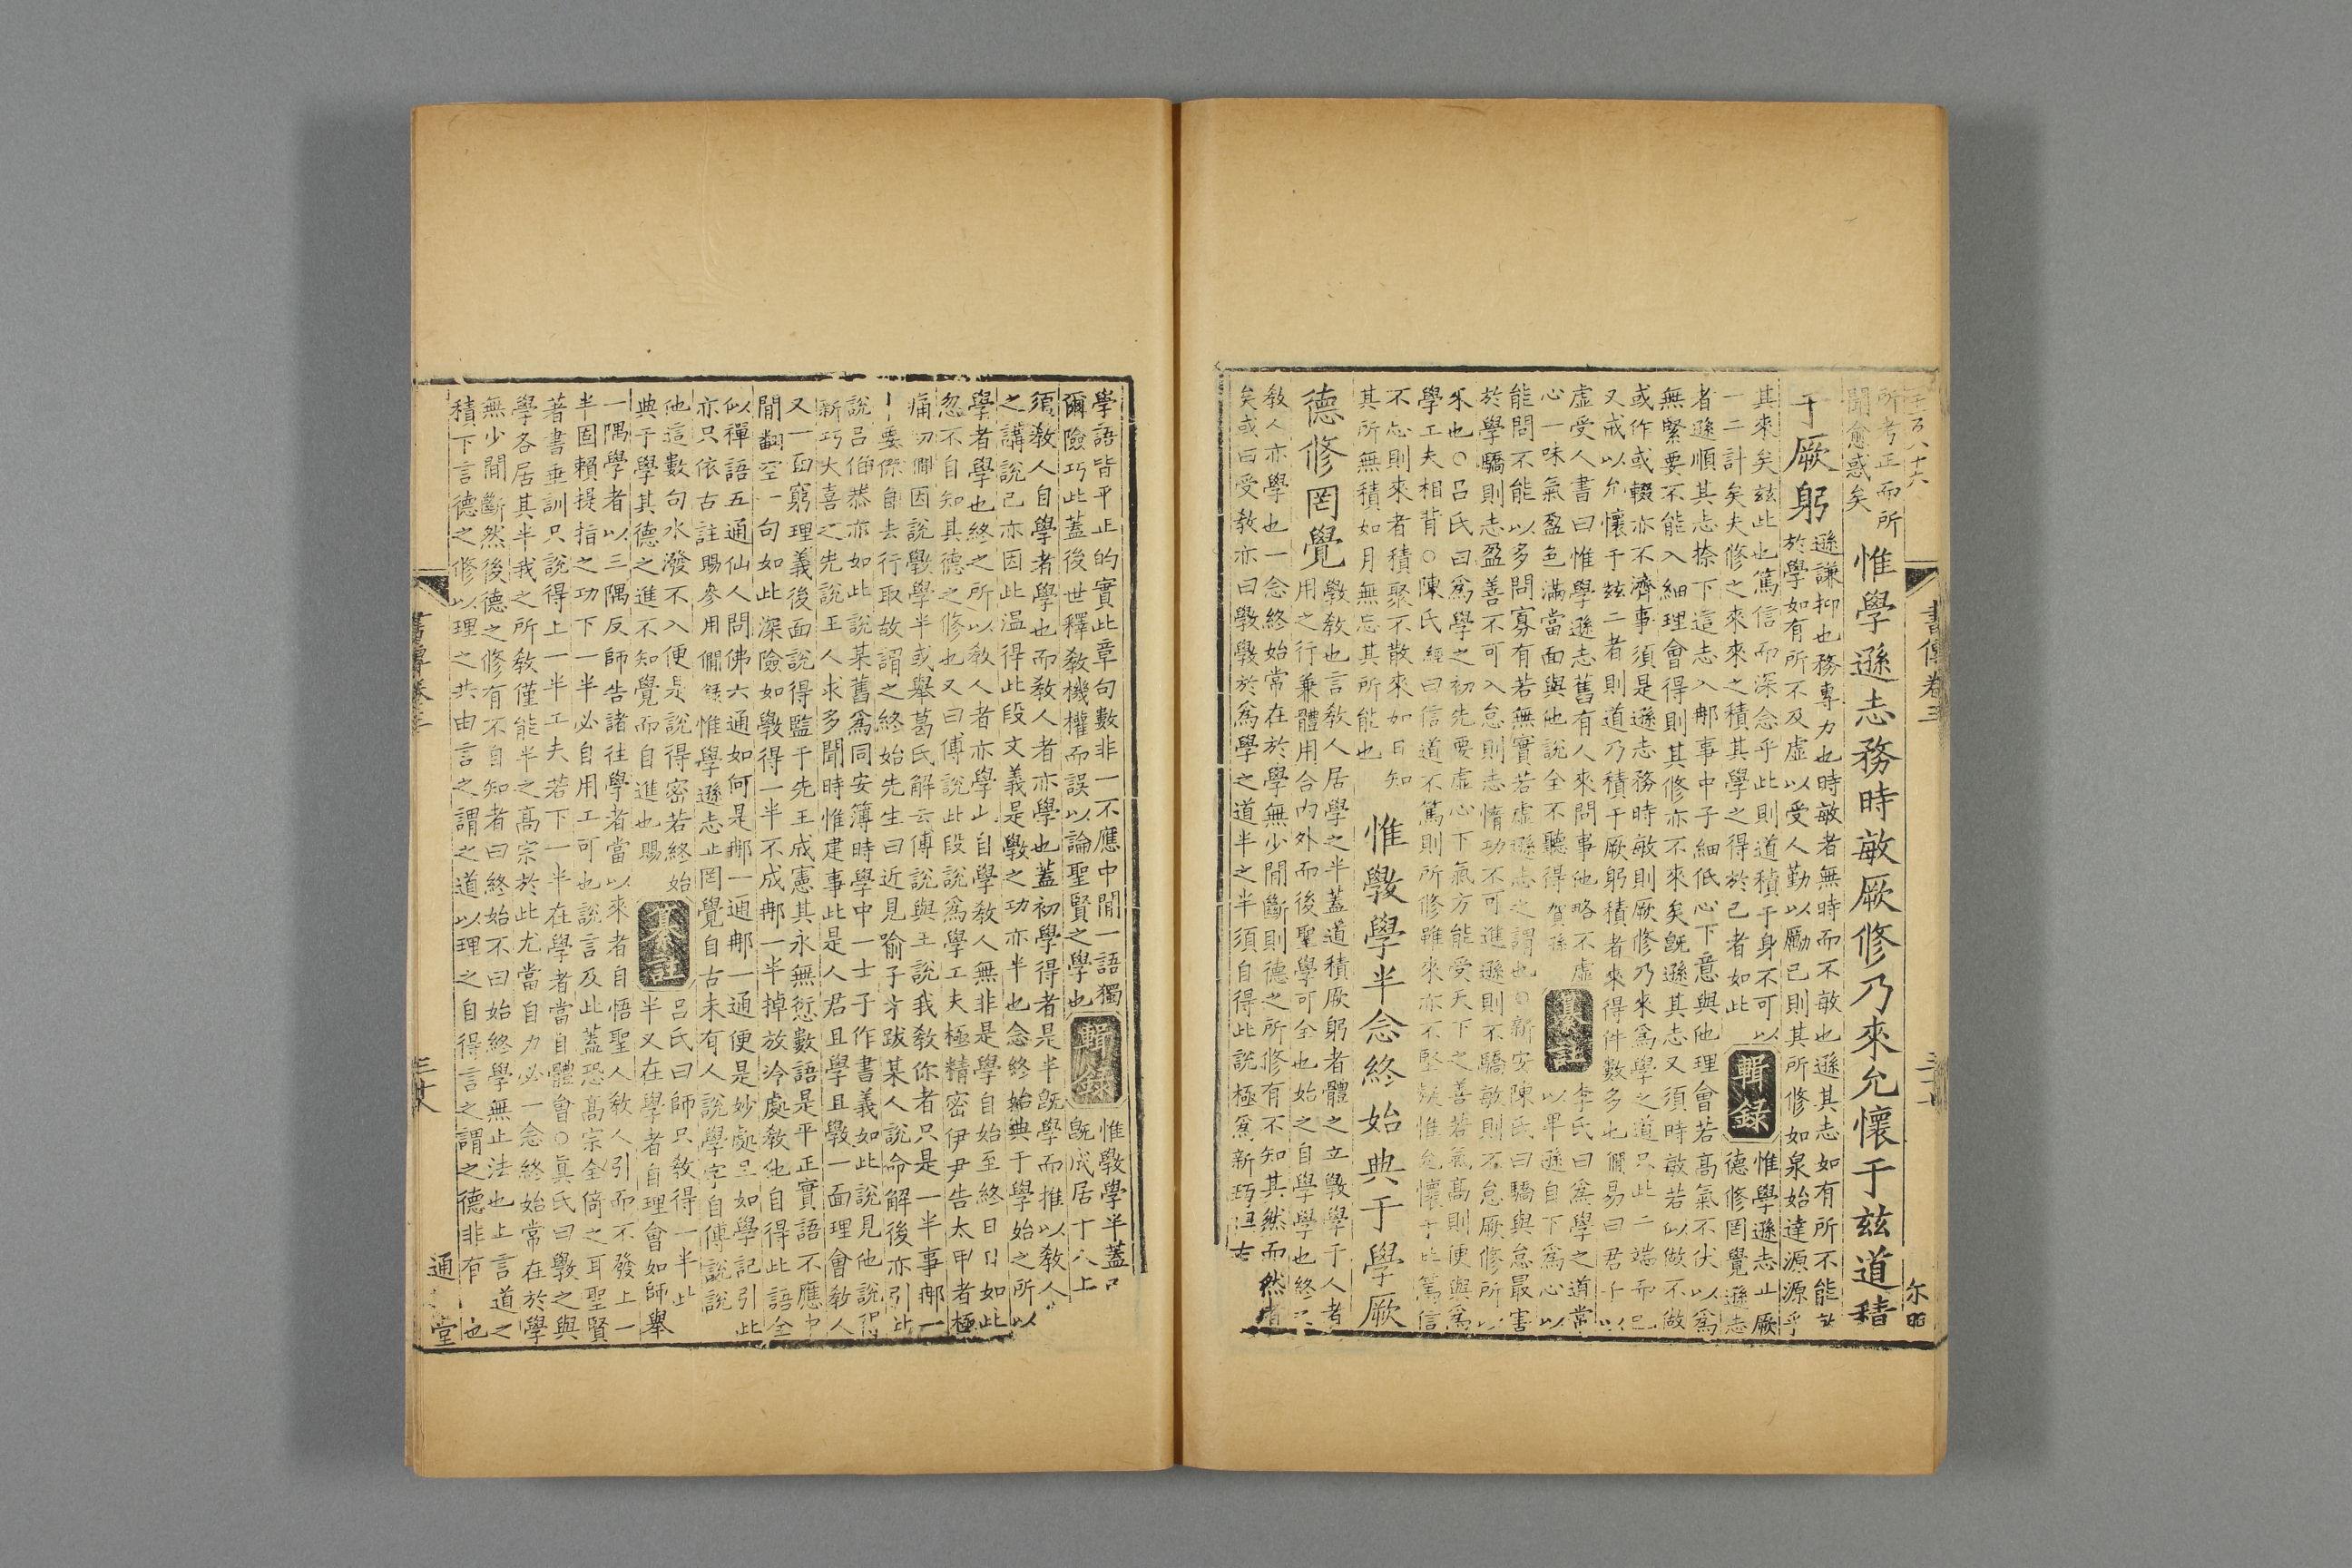 所考正而所
聞愈惑矣
惟學遜志務時敏厥修乃來允懷于茲道積
于厥躬
遜謙抑也務專力也時敏者無時而不敏也遜其志如有所不能
於學如有所不及虛以受人勤以勵己則其所修如泉始達源源乎
其來矣茲此也篤信而深念乎此則道積于身不可以
一二計矣夫修之來來之積其學之得於己者如此
輯錄
惟學遜志止厥
德修罔覺遜志
者遜順其志捺下這志入那事中子細低心下意與他理會若高氣不伏以爲
無緊要不能入細理會得則其修亦不來矣旣遜其志又須時敏若似做不做
或作或輟亦不濟事須是遜志務時敏則厥修乃來爲學之道只此二端而已
又戒以允懷于茲二者則道乃積于厥躬積者來得件數多也僴易曰君子以
虛受人書曰惟學遜志舊有人來問事他略不虛
心一味氣盈色滿當面與他說全不聽得賀孫
纂註
李氏曰爲學之道常
以卑遜自下爲心以
能問不能以多問寡有若無實若虛遜志之謂也○新安陳氏曰驕與怠最害
於學驕則志盈善不可入怠則志惰功不可進遜則不驕敏則不怠厥修所以
來也○呂氏曰爲學之初先要虛心下氣方能受天下之善若氣高則便與爲
學工夫相背○陳氏經曰信道不篤則所修雖來亦不堅凝惟允懷于此篤信
不忘則來者積聚不散來如日知
其所無積如月無忘其所能也
惟斅學半念終始典于學厥
德修罔覺
斅敎也言敎人居學之半蓋道積厥躬者體之立斅學于人者
用之行兼體用合內外而後聖學可全也始之自學學也終之
敎人亦學也一念終始常在於學無少間斷則德之所修有不知其然而然者
矣或曰受敎亦曰斅斅於爲學之道半之半須自得此說極爲新巧但古
書傳卷三
學語皆平正的實此章句數非一不應中間一語獨
爾險巧此蓋後世釋敎機權而誤以論聖賢之學也
輯錄
惟斅學半蓋已
旣成居于人上
須敎人自學者學也而敎人者亦學也蓋初學得者是半旣學而推以敎人
之講說己亦因此温得此段文義是斅之功亦半也念終始典于學始之所以
學者學也終之所以敎人者亦學也自學敎人無非是學自始至終日日如此
忽不自知其德之修也又曰傅說此段說爲學工夫極精密伊尹告太甲者極
痛切僴因說斅學半或舉葛氏解云傅說與王說我敎你者只是一半事那一
半要你自去行取故謂之終始先生曰近見喻子才跋某人說命解後亦引此
說呂伯恭亦如此說某舊爲同安簿時學中一士子作書義如此說見他說得
新巧大喜之先說王人求多聞時惟建事此是人君且學且斅一面理會敎人
又一面窮理義後面說得監于先王成憲其永無愆數語是平正實語不應中
間翻空一句如此深險如斅得一半不成那一半掉放冷處敎他自得此語全
似禪語五通仙人問佛六通如何是那一通那一通便是妙處且如學記引此
亦只依古註賜參用僴錄惟學遜志止罔覺自古未有人說學字自傅說說
他這數句水潑不入便是說得密若終始
典于學其德之進不知覺而自進也賜
纂註
呂氏曰師只敎得一半此
半又在學者自理會如師舉
一隅學者以三隅反師告諸往學者當以來者自悟聖人敎人引而不發上一
半固賴提指之功下一半必自用工可也說言及此蓋恐高宗全倚之耳聖賢
著書垂訓只說得上一半工夫若下一半在學者當自體會○眞氏曰斅之與
學各居其半我之所敎僅能半之高宗於此尤當自力必一念終始常在於學
無少間斷然後德之修有不自知者曰終始不曰始終學無止法也上言道之
積下言德之修以理之共由言之謂之道以理之自得言之謂之德非有 也
書傳卷三
通 堂